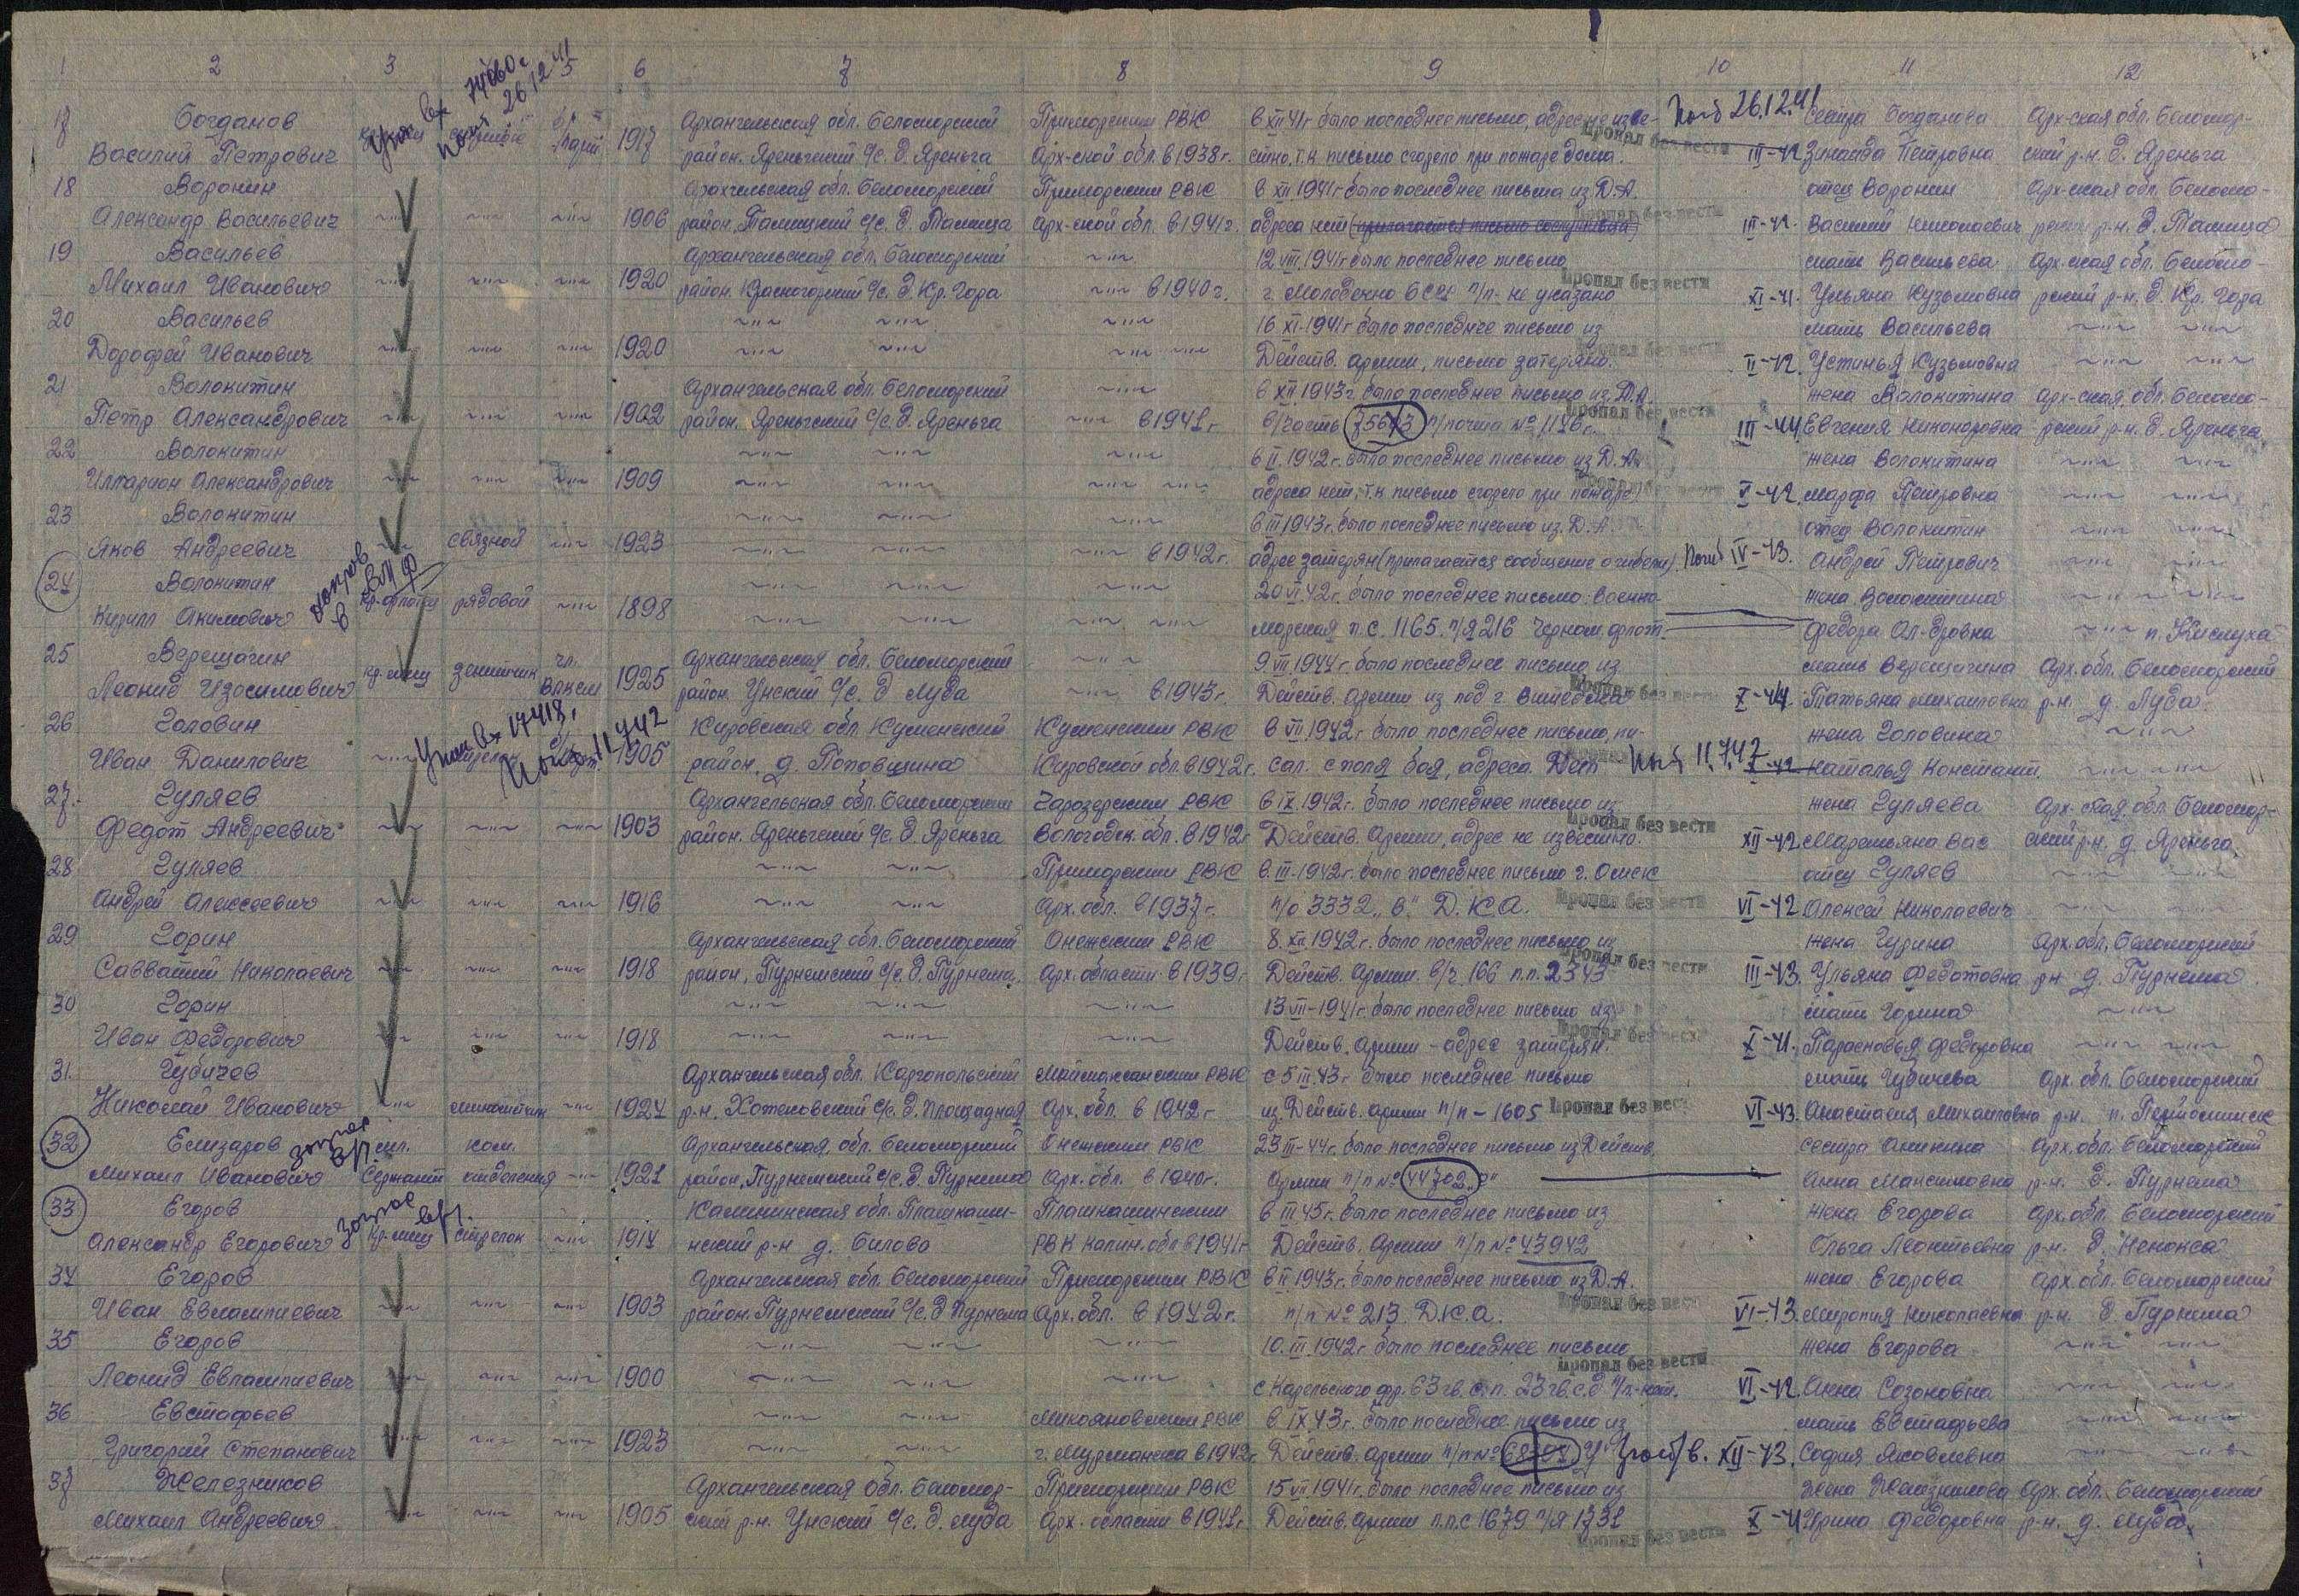 1 2 3 5 6 7 8 9 10 11 12
17 Богданов Архангельская обл. Беломорский Приморским РВК в XII 41г было последнее письмо, адрес не изве- Погиб 26.12.41 сестра Богданова Арх-ская обл. Беломор-
Василий Петрович 1917 район. Яреньгский с/с. д. Яреньга Арх-ской обл. в 1938г. стно, т.к письмо сгорело при пожаре дома. Пропал без вести III-42 Зинаида Петровна ский р-н. д. Яреньга
18 Воронин Архангельская обл. Беломорский Приморским РВК в XII 1941г было последнее письмо из Д.А. отец Воронин Арх-ская обл. Беломо-
Александр Васильевич 1906 район. Тамицкий с/с. д. Тамица Арх-ской обл. в 1941г. адреса нет Пропал без вести III-42. Василий Николаевич р-н. д. Тамица
19 Васильев Архангельская обл. Беломорский 12 VIII 1941г было последнее письмо мать Васильева Арх-ская обл. Беломо-
Михаил Иванович 1920 район. Красногорский с/с. д. Кр. Гора в 1940г. г. Молодечно БССР п/п. не указано Пропал без вести XI-41. Ульяна Кузьмовна рский р-н. д. Кр. Гора
20 Васильев 16 XI-1941г было последнее письмо из мать Васильева
Дорофей Иванович 1920 Действ. армии, письмо затеряно. Пропал без вести II-42. Устинья Кузьмовна
21 Волокитин Архангельская обл. Беломорский в XII 1943г было последнее письмо из Д.А. жена Волокитина Арх-ская обл. Беломо-
Петр Александрович 1902 район. Яреньгский с/с. д. Яреньга в 1941г в/часть п/почта № Пропал без вести III-44 Евгения Никоноровна рский р-н. д. Яреньга
22 Волокитин в II. 1942г. было последнее письмо из Д.А. жена Волокитина
Илларион Александрович 1909 адреса нет, т.к письмо сгорело при пожаре Пропал без вести V-42. Марфа Петровна
23 Волокитин в III 1943г. было последнее письмо из Д.А. отец Волокитин
Яков Андреевич связной 1923 в 1942г. адрес затерян (прилагается сообщение о гибели). Погиб IV-43. Андрей Петрович
24 Волокитин 20 VI 42г. было последнее письмо: Военно- жена Волокитина
Кирилл Акимович рядовой 1898 морская п.с. 1165. п/я 216 Черном. флот. Федора Ал-дровна п. Кислуха
25 Верещагин чл. Архангельская обл. Беломорский 9 VII 1944г было последнее письмо из мать Верещагина Арх. обл. Беломорский
Леонид Изосимович кр-еец зенитчик ВЛКСМ 1925 район. Унский с/с. д Луда в 1943г. Действ. армии из под г. Витебска Пропал без вести X-44. Татьяна Михайловна р-н. д. Луда.
26 Головин Кировская обл Куменский Куменским РВК в VII 1942г. было последнее письмо, пи- жена Головина
Иван Данилович 1905 район. д. Поповщина Кировской обл. в 1942г. сал с поля боя, адреса нет Погиб 11.7.42 Наталья Констант.
27. Гуляев Архангельская обл. Беломорский Чарозерским РВК в IX. 1942г. было последнее письмо из жена Гуляева Арх-ская обл. Беломор-
Федот Андреевич 1903 район. Яреньгский с/с. д. Яреньга Вологодск. обл. в 1942г Действ. армии, адрес не известно. Пропал без вести XII-42 Маремьяна Вас ский р-н. д. Яреньга
28 Гуляев Приморским РВК в III-1942г. было последнее письмо г. Омск отец Гуляев
Андрей Алексеевич 1916 Арх. обл. в 1937г. п/о 3332 „в" Д.К.А. Пропал без вести VI-42 Алексей Николаевич
29 Горин Архангельская обл. Беломорский Онежским РВК 8. XII. 1942г. было последнее письмо из жена Гурина Арх. обл. Беломорский
Савватий Николаевич 1918 район, Пурнемский с/с. д. Пурнема Арх. области в 1939г Действ. армии. в/ч. 166 п.п. 2343 Пропал без вести III-43. Ульяна Федотовна р-н д. Пурнема
30 Горин 13 VII-1941г. было последнее письмо из мать Горина
Иван Федорович 1918 Действ. армии - адрес затерян. Пропал без вести X-41. Парасковья Федоровна
31. Губичев Архангельская обл. Каргопольский Маймаксанским РВК с 5 III. 43г было последнее письмо мать Губичева Арх. обл. Беломорский
Николай Иванович минометчик 1924 р-н. с/с. д. Площадная Арх. обл. в 1942г из Действ. армии п/п - 1605 Пропал без вести VI-43. Анастасия Михайловна р-н. п. Пертоминск
32 Елизаров мл. ком. Архангельская, обл. Беломорский Онежским РВК 23 III-44г. было последнее письмо из Действ. сестра Аникина Арх. обл. Беломорский
Михаил Иванович Сержант отделения 1921 район, Пурнемский с/с. д. Пурнема Арх. обл. в 1940г. Армии п/п № 44702 Анна Максимовна р-н. д. Пурнема
33 Егоров Калининская обл. в III 45г. было последнее письмо из жена Егорова Арх. обл. Беломорский
Александр Егорович кр-еец стрелок 1914 р-н д. Билово РВК Калин. обл в 1941г Действ. армии п/п № 43942 Ольга Леонтьевна р-н. д. Ненокса
34 Егоров Архангельская обл. Беломорский Приморским РВК в II 1943г. было последнее письмо из Д.А. жена Егорова Арх. обл. Беломорский
Иван Евлампиевич 1903 район. Пурнемский с/с д Пурнема Арх. обл. в 1942г. п/п № 213 Д.К.А. Пропал без вести VI-43. Миропия Николаевна р-н. д. Пурнема
35 Егоров 10. III 1942г было последнее письмо жена Егорова
Леонид Евлампиевич 1900 с Карельского фр. 63 гв. с.п. 23 гв. с.д п/п-нет. Пропал без вести VI-42. Анна Созоновна
36 Евстафьев Микояновским РВК в IX 43г. было последнее письмо из мать Евстафьева
Григорий Степанович 1923 г. Мурманска в 1942г. Действ. армии п/п № XII-43. София Яковлевна
37 Железников Архангельская обл. Беломор- Приморским РВК 15 VII 1941г. было последнее письмо из жена Железникова Арх. обл. Беломорский
Михаил Андреевич 1905 ский р-н. Унский с/с. д. Луда Арх. области в 1941г. Действ. армии п.п.с 1679 п/я 1731 Пропал без вести X-41 Ирина Федоровна р-н. д. Луда.